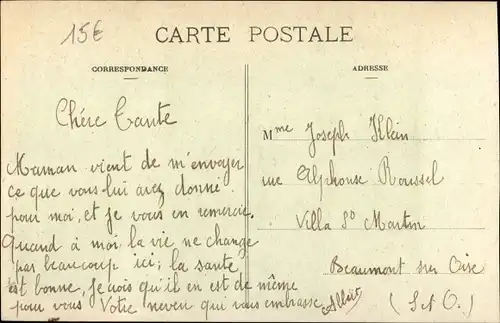 15€
CARTE POSTALE
CORRESPONDANCE
ADRESSE
Chére Tante
Maman vient de m'envoyer
ce que vous lui avez donné
pour moi, et je vous en remercie.
Quand à moi la vie ne change
pas beaucoup ici; la santé
est bonne, je crois qu'il en est de même
pour vous Votre neveu qui vous embrasse
Mme Joseph Klein
rue Alphonse Roussel
Villa St Martin
Beaumont sur Oise
(S et O.)